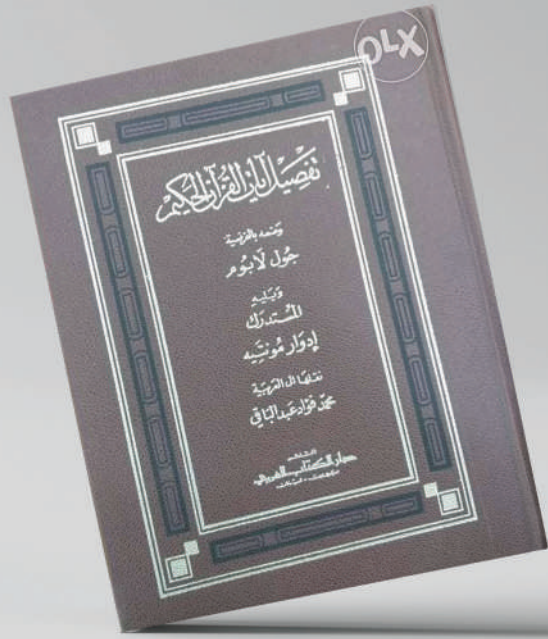 OLX
تفصيل آيات القرآن الحكيم
وضعه بالفرنسية
جول لابوم
ويليه
المستدرك
إدوار مونتيه
نقلها إلى العربية
محمد فؤاد عبد الباقي
الناشر
دار الكتاب العربي